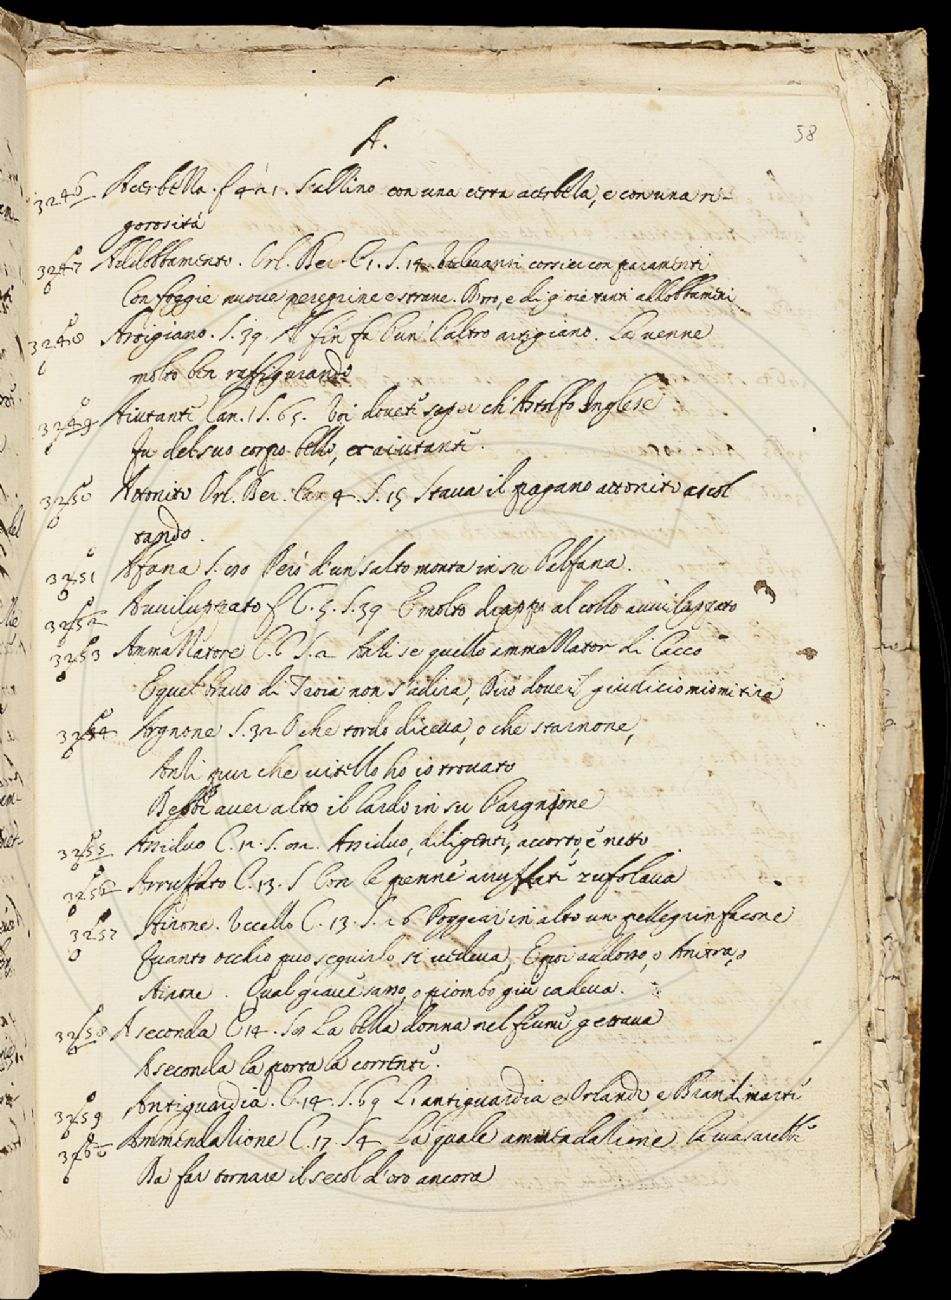 58
A.
3246 Acerbella. f 4 n 1. Sullino con una certa acerbella, e con una ri-
gorosità
3247 Addobbamento. Orl. Ber. C 1. S. 14. corsieri con paramenti
Con foggie nuove peregrine e strane. D'oro, e di gioie tanti addobbamenti
3248 Artigiano. S. 39. Al fin fa l'un l'altro artigiano. La venne
molto ben raffigurando
3249 Aiutanti Can. 1 S. 65. Voi dovete saper ch'Astolfo Inglese
Fu del suo corpo bello, et aiutante.
3250 Attonito Orl. Ber. Can 4. S. 15 Stava il pagano attonito ascol
tando.
3251 Afana S. Però d'un salto monta in su l'alfana.
3252 Avviluppato C. 5. S. 39 E molto drappo al collo avviluppato
3253 Ammazzatore C. 6 S. 2 Anzi se quello ammazzator di Cacco
E quel bravo di Troia non s'adira, Dirò dove il giudicio mio mi tira
3254 Argnone S. 32 O che tordo diceva, o che starnone,
Anzi pur che vitello ho io trovato
Debbi aver alto il lardo in su l'argnone
3255 Assiduo C. 12. S. Assiduo, diligente, accorto, e netto
3256 Arruffato C. 13. S Con le penne arruffate zufolava
3257 Airone. Uccello C. 13. S. 26 Poggear in alto un pellegrin falcone
Quanto occhio può seguirlo si vedeva, E poi addosso, o Anitra, o
Airone. Qual grave sasso, o piombo giù cadeva.
3258 A seconda C 14. S La bella donna nel fiume gettava
A seconda la porta la corrente.
3259 Antiguardia. C. 14. S. 69 L'antiguardia e Orlando, e Brandimarte
3260 Ammendazione C. 17. S 4 La quale ammendazione
Da far tornare il secol d'oro ancora